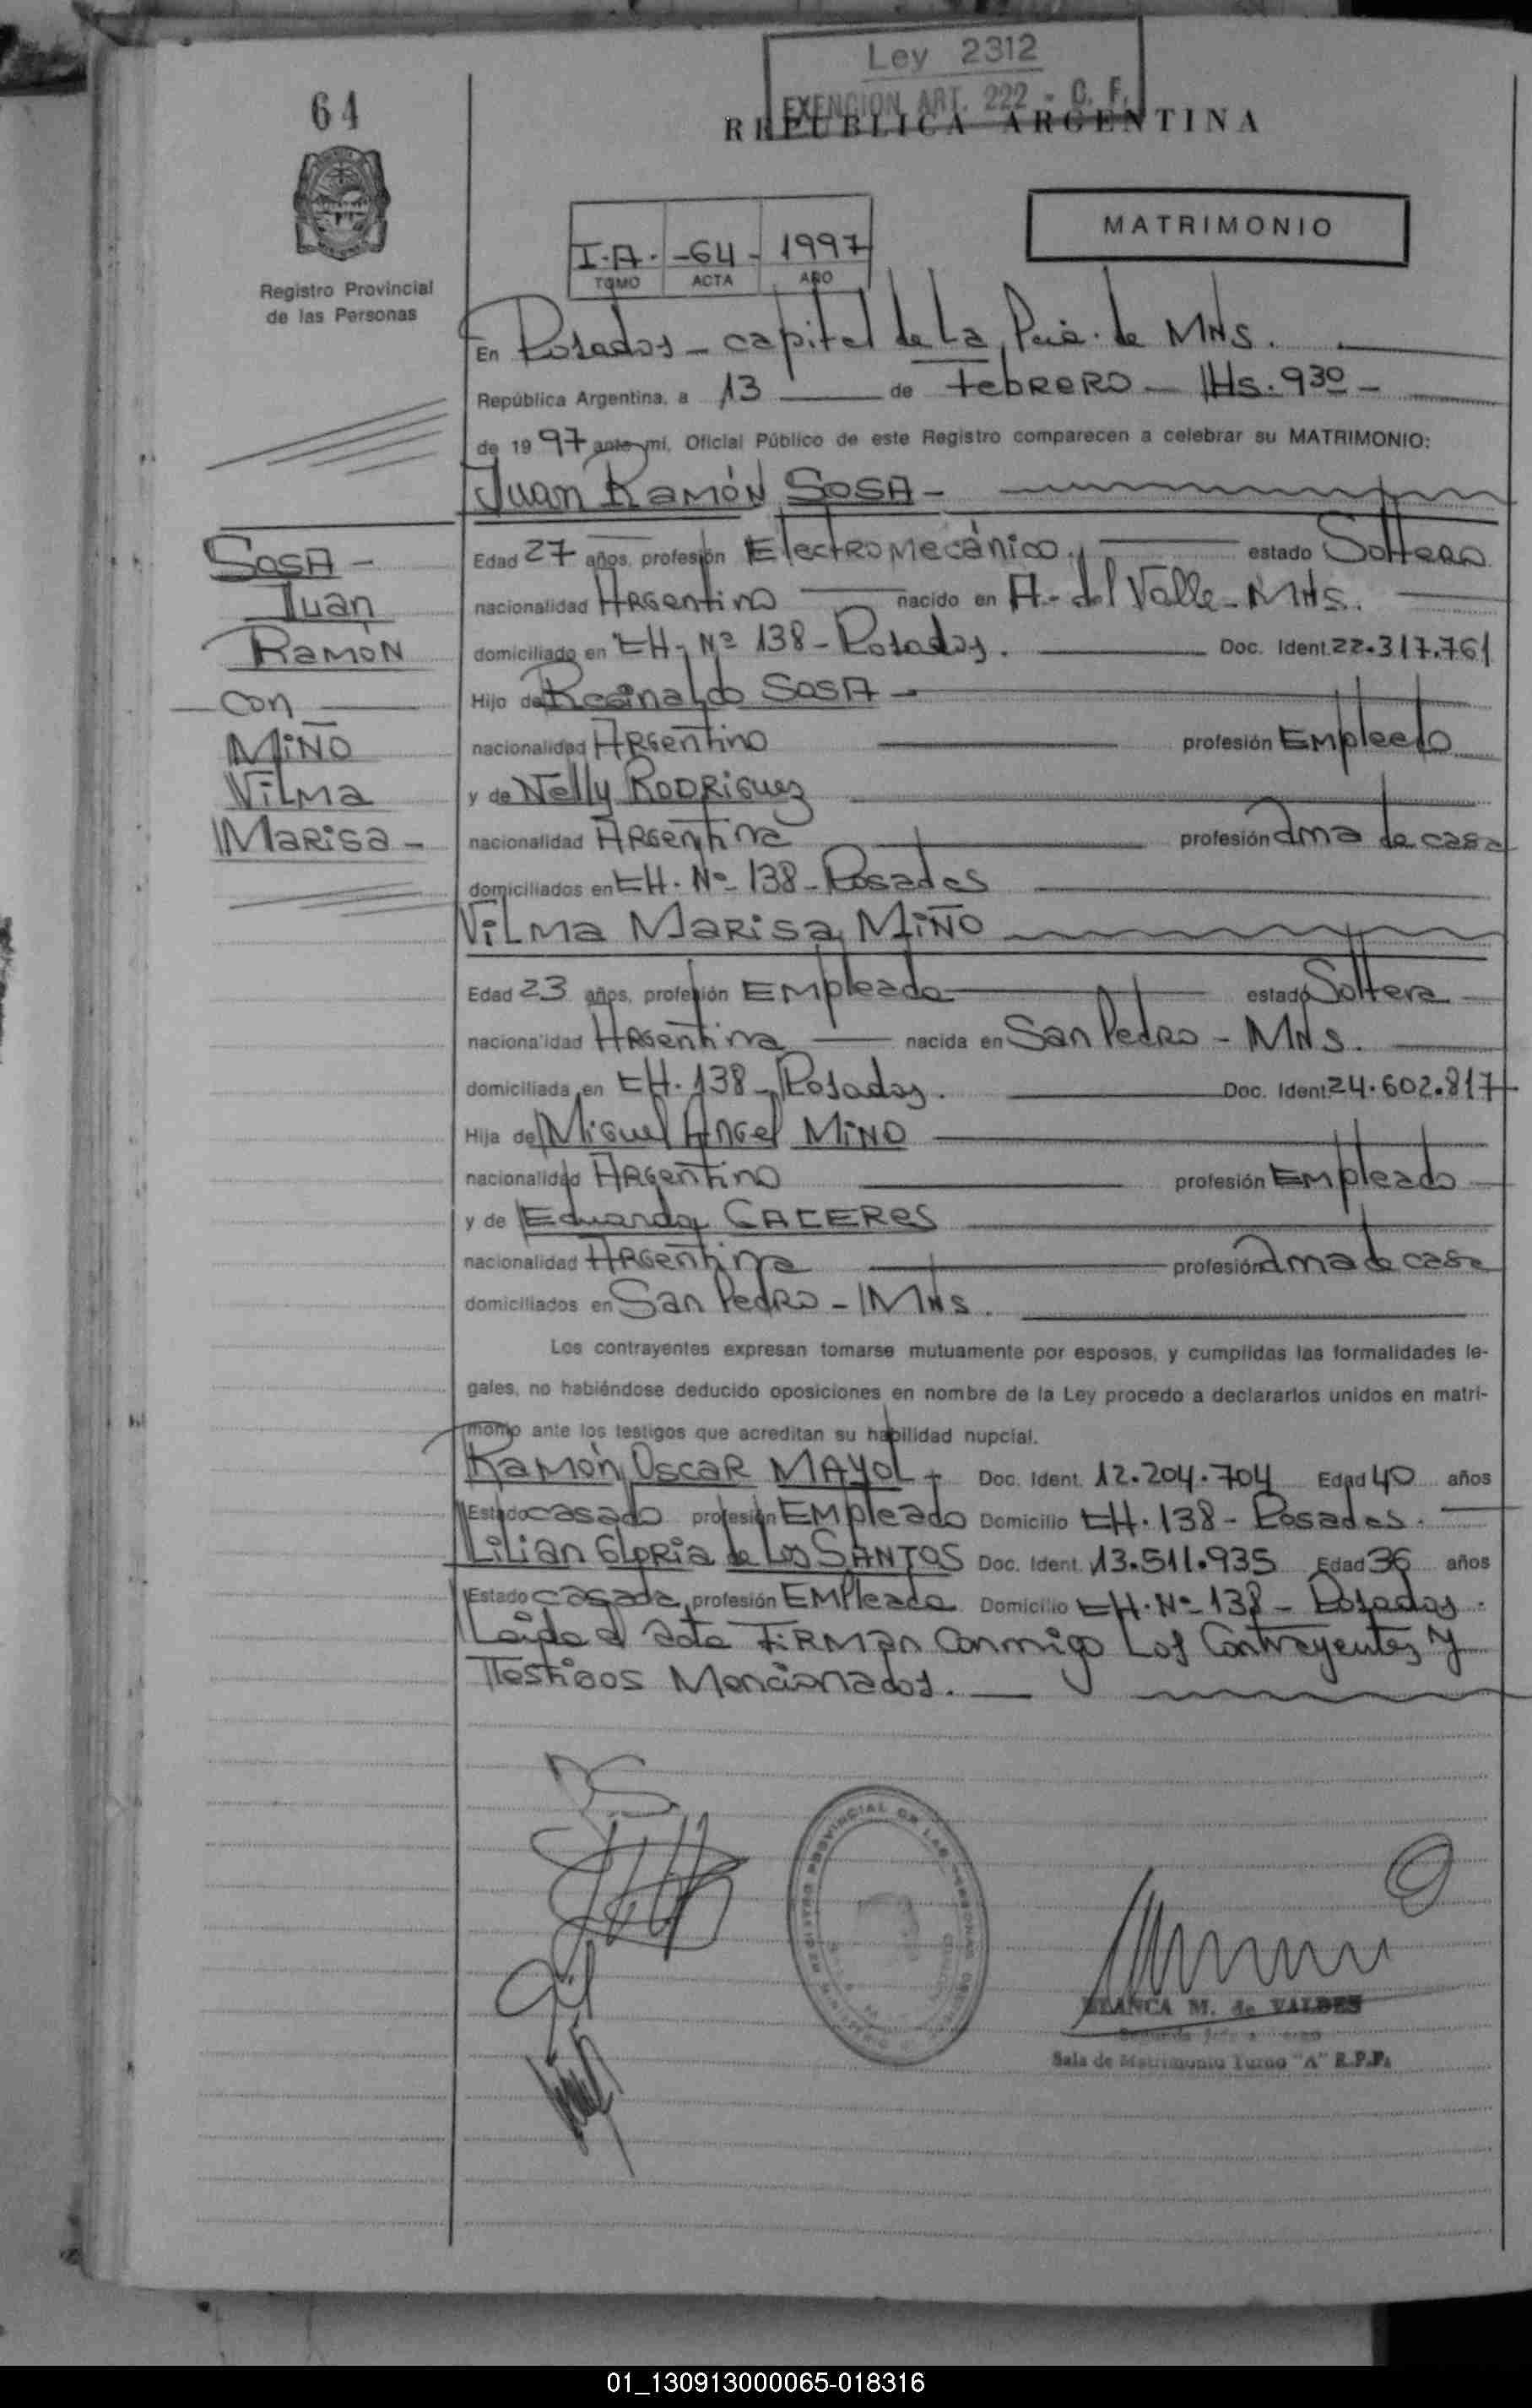 Ley 2312
EXENCION ART. 222 - C. F.
64
REPUBLICA ARGENTINA
MATRIMONIO
I.A. -64- 1997
TOMO ACTA AÑO
Registro Provincial
de las Personas
En Posadas - capital de La Pcia. de MNS.
República Argentina, a 13 de FebRERO - Hs. 930 -
de 1997 ante mí, Oficial Público de este Registro comparecen a celebrar su MATRIMONIO:
Juan RamóN SOSA -
SOSA -
Juan
RamóN
con
MiÑO
ViLMa
MaRisa -
Edad 27 años, profesión ElectROMecánico. estado SolteRo
nacionalidad ARGentino nacido en A. del Valle - MNS.
domiciliado en CH. Nº 138 - Posadas. Doc. Ident. 22.317.761
Hijo de ReGinaldo SOSA -
nacionalidad ARGentino profesión EMpleado
y de Nelly RODRIGuez
nacionalidad ARGentina profesión ama de casa
domiciliados en CH. Nº 138 - Posadas
ViLMa MaRisa MiÑO
Edad 23 años, profesión EMpleada estado Soltera
nacionalidad ARGentina nacida en San PedRo - MNS.
domiciliada en CH. 138 - Posadas. Doc. Ident. 24.602.817
Hija de MiGuel AnGel MiÑO
nacionalidad ARGentino profesión EMpleado
y de Eduarda CACERes
nacionalidad ARGentina profesión ama de casa
domiciliados en San PedRo - MNS.
Los contrayentes expresan tomarse mutuamente por esposos, y cumplidas las formalidades le-
gales, no habiéndose deducido oposiciones en nombre de la Ley procedo a declararlos unidos en matri-
monio ante los testigos que acreditan su habilidad nupcial.
RaMón OscaR MAYOL - Doc. Ident. 12.204.704 Edad 40 años
Estado casado profesión EMpleado Domicilio CH. 138 - Posadas.
LiLian GLoRia de Los SANTOS Doc. Ident. 13.511.935 Edad 36 años
Estado casada, profesión EMPleada Domicilio CH. Nº 138 - Posadas.
Leída el acta FiRMan conmigo Los Contrayentes y
Testigos Mencionados.
REGISTRO PROVINCIAL DE LAS PERSONAS
BLANCA M. de VALDES
Sala de Matrimonio Turno "A" R.P.P.
01_130913000065-018316